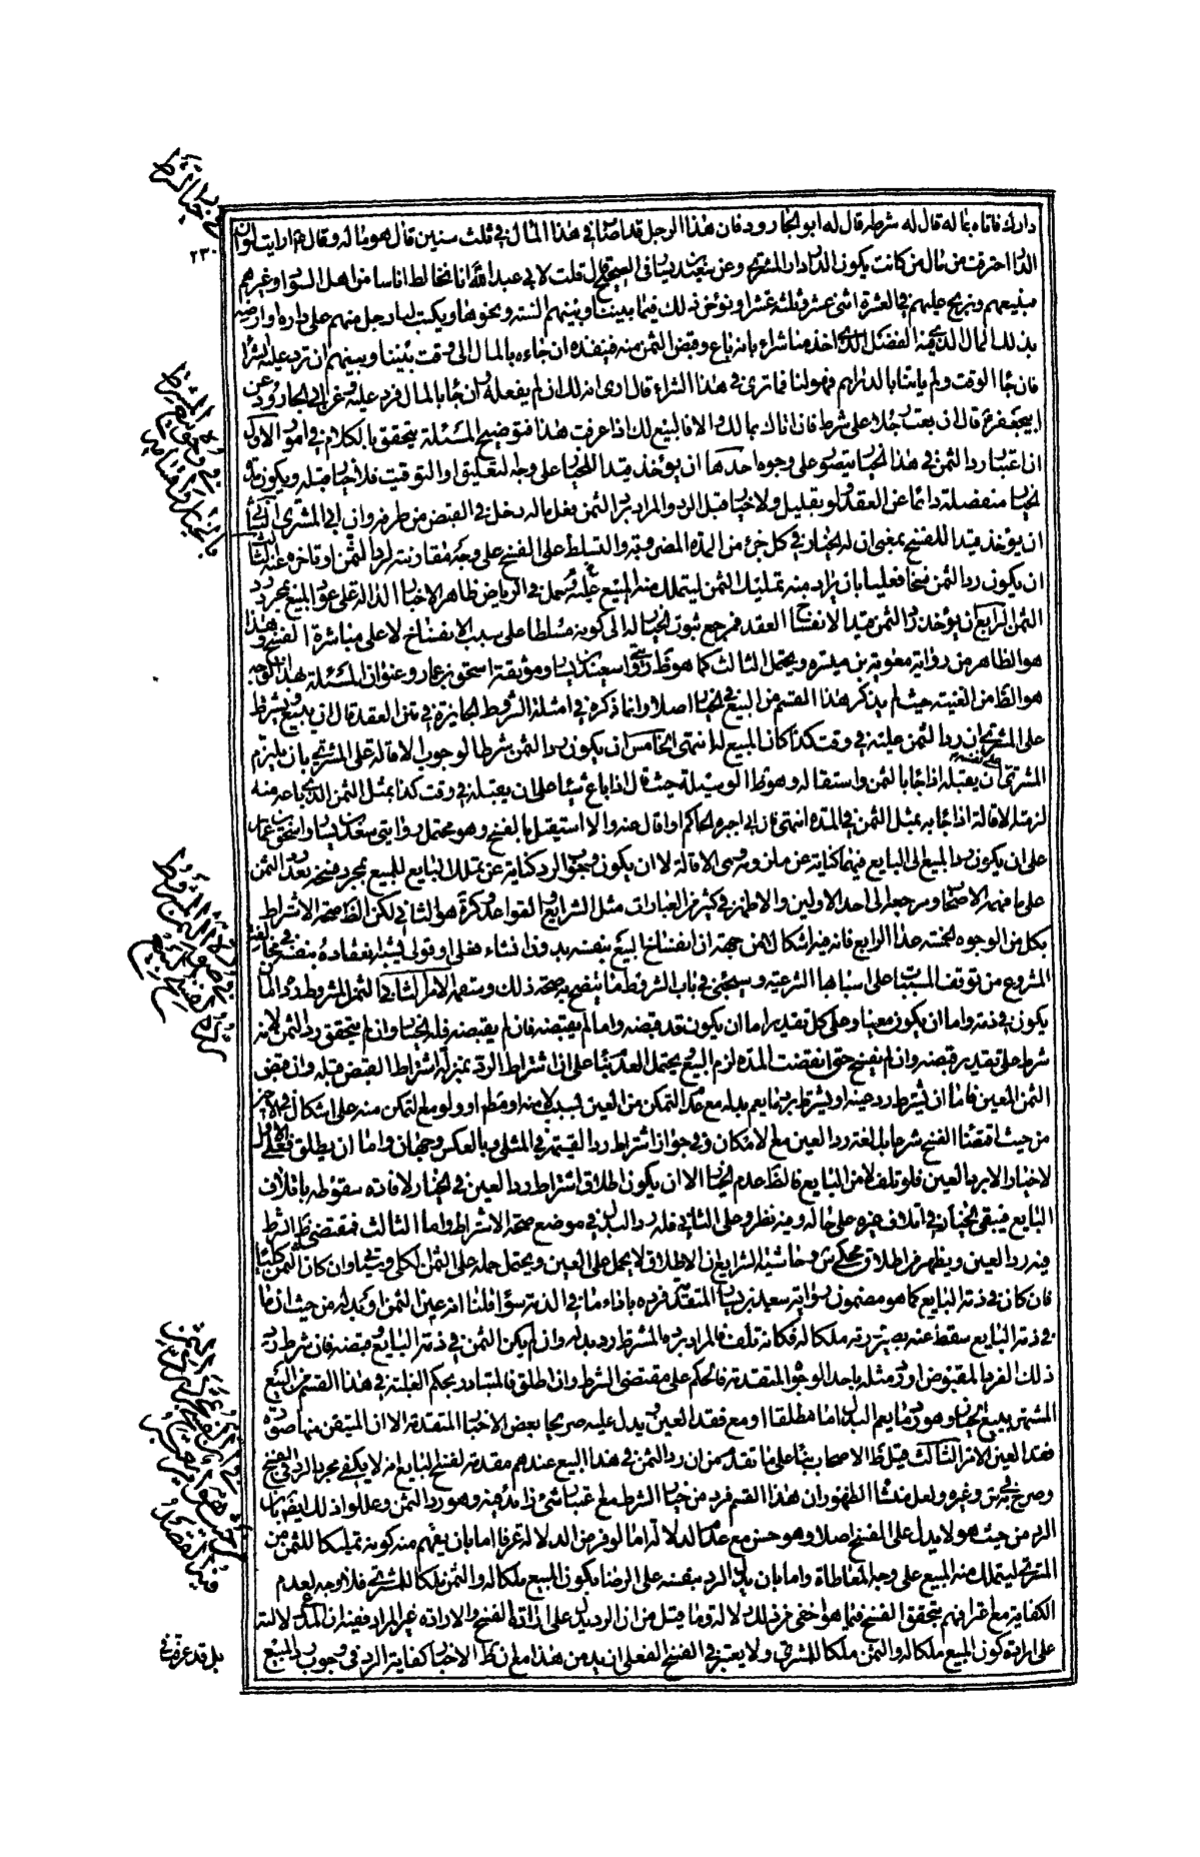 دارك فاتاه بماله قال له شرطه قال له ابو الجارود فان هذا الرجل قد اصاب في هذا المال في ثلث سنين قال هو ماله وقال ع ارايت لو ان
الدار احترقت من مال من كانت يكون الدار دار المشتري وعن سعيد بن يسار في الصحيح قال قلت لابي عبد الله انا نخالط اناسا من اهل السواد وغيرهم
فنبيعهم ونربح عليهم في العشرة اثنى عشر وثلثة عشر ونؤخر ذلك فيما بيننا وبينهم السنة ونحوها ويكتب لنا رجل منهم على داره او ارضه
بذلك المال الذي فيه الفضل الذي اخذ منا شراء بانه باع وقبض الثمن منه فنعده ان جاء بالمال الى وقت بيننا وبينهم ان نرد عليه الشراء
فان جاء الوقت ولم ياتنا بالدراهم فهو لنا فما ترى في هذا الشراء قال ارى انه لك ان لم يفعله وان جاء بالمال فرد عليه وعن ابي الجارود عن
ابي جعفر ع قال ان بعت رجلا على شرط فان اتاك بمالك والا فالبيع لك اذا عرفت هذا فتوضيح المسئلة يتحقق بالكلام في امور الاول
ان اعتبار رد الثمن في هذا الخيار يتصور على وجوه احدها ان يؤخذ قيدا للخيار على وجه التعليق او التوقيت فلا خيار قبله ويكون مدة
الخيار منفصلة دائما عن العقد ولو بقليل ولا خيار قبل الرد والمراد برد الثمن فعل ما له دخل في القبض من طرفه وان ابى المشتري الثاني
ان يؤخذ قيدا للفسخ بمعنى ان له الخيار في كل جزء من المدة المضروبة والتسلط على الفسخ على وجه مقارنته لرد الثمن او تاخره عنه الثالث
ان يكون رد الثمن فسخا فعليا بان يراد منه تمليك الثمن ليتملك منه المبيع وعليه حمل في الرياض ظاهر الاخبار الدالة على عود المبيع بمجرد رد
الثمن الرابع ان يؤخذ رد الثمن قيدا لانفساخ العقد فمرجع ثبوت الخيار له الى كونه مسلطا على سبب الانفساخ لا على مباشرة الفسخ وهذا
هو الظاهر من رواية معوية بن ميسرة ويحتمل الثالث كما هو ظ روايتي سعيد بن يسار وموثقة اسحق بن عمار وعنوان المسئلة بهذا الوجه
هو الظ من الغنية حيث لم يذكر هذا القسم من البيع في الخيار اصلا وانما ذكره في امثلة الشروط الجايزة في متن العقد قال ان يبيع ويشترط
على المشتري ان رد الثمن عليه في وقت كذا كان المبيع له انتهى الخامس ان يكون رد الثمن شرطا لوجوب الاقالة على المشتري بان يلتزم
المشتري على نفسه ان يقيله اذا جاء بالثمن واستقاله وهو ظ الوسيلة حيث قال اذا باع شيئا على ان يقيله في وقت كذا بمثل الثمن الذي باعه منه
لزمته الاقالة اذا جاءه بمثل الثمن في المدة انتهى فان ابى اجبره الحاكم او اقال عنه والا استقل بالفسخ وهو محتمل روايتي سعيد بن يسار واسحق بن عمار
على ان يكون رد المبيع الى البايع فيهما كناية عن ملزومه وهى الاقالة لا ان يكون وجوب الرد كناية عن تملك البايع للمبيع بمجرد فسخه بعد رد الثمن
على ما فهمه الاصحاب ومرجعه الى احد الاولين والاظهر في كثير من العبارات مثل الشرايع والقواعد وكرة هو الثاني لكن الظ صحة الاشتراط
بكل من الوجوه الخمسة عدا الرابع فانه فيه اشكالا من جهة ان انفساخ البيع بنفسه بدون انشاء فعلى او قولى يشبه انعقاده بنفسه في مخالفة
المشروع من توقف المسببات على اسبابها الشرعية وسيجئ في باب الشروط ما يتضح به صحة ذلك وسقمه الامر الثاني الثمن المشروط رده اما ان
يكون في ذمته واما ان يكون معينا وعلى كل تقدير اما ان يكون قد قبضه واما لم يقبضه فان لم يقبضه فله الخيار وان لم يتحقق رد الثمن لانه
شرط على تقدير قبضه وان لم يفسخ حتى انقضت المدة لزم البيع ويحتمل العدم بناء على ان اشتراط الرد بمنزلة اشتراط القبض قبله وان قبض
الثمن المعين فاما ان يشترط رد عينه او يشترط رد ما يعم بدله مع عدم التمكن من العين بسبب لا منه او مطلقا او ولو مع التمكن منه على اشكال في الاخير
من حيث اقتضاء الفسخ شرعا بل لغة رد العين مع الامكان وفي جواز اشتراط رد القيمة في المثلي وبالعكس وجهان واما ان يطلق فعلى الاول
لا خيار الا برد العين فلو تلف لا من البايع فالظ عدم الخيار الا ان يكون اطلاق اشتراط رد العين في الخيار لافادة سقوطه باتلاف
البايع فيبقى الخيار في اتلاف غيره على حاله وفيه نظر وعلى الثاني فله رد البدل في موضع صحة الاشتراط واما الثالث فمقتضى ظ الشرط
فيه رد العين ويظهر من اطلاق محكى س وحاشية الشرايع ان الاطلاق لا يحمل على العين ويحتمل حمله على الثمن الكلى وسياتي وان كان الثمن كليا
فان كان في ذمة البايع كما هو مضمون رواية سعيد بن يسار المتقدمة فرده باداء ما في الذمة سواء قلنا انه عين الثمن او بدله من حيث ان ما
في ذمة البايع سقط عنه بصيرورته ملكا له فكانه تلف فالمراد برده المشترط رد بدله وان لم يكن الثمن في ذمة البايع وقبضه فان شرط رد
ذلك الفرد المقبوض او رد مثله باحد الوجوه المتقدمة فالحكم على مقتضى الشرط وان اطلق فالمتبادر بحكم الغلبة في هذا القسم من البيع
المشتهر ببيع الخيار هو رد ما يعم البدل اما مطلقا او مع فقد العين ويدل عليه صريحا بعض الاخبار المتقدمة الا ان المتيقن منها صورة
فقد العين الامر الثالث قيل ظ الاصحاب بناء على ما تقدم من ان رد الثمن في هذا البيع عندهم مقدمة لفسخ البايع انه لا يكفي مجرد الرد في الفسخ
وصرح به في س وغيره ولعل منشأ الظهور ان هذا القسم فرد من خيار الشرط مع اعتبار شئ زائد فيه وهو رد الثمن وعللوا ذلك ايضا بان
الرد من حيث هو لا يدل على الفسخ اصلا وهو حسن مع عدم الدلالة اما لو فرض الدلالة عرفا اما بان يفهم منه كونه تمليكا للثمن من
المشتري ليتملك منه المبيع على وجه المعاطاة واما بان يدل الرد بنفسه على الرضا بكون المبيع ملكا له والثمن ملكا للمشتري فلا وجه لعدم
الكفاية مع اعترافهم بتحقق الفسخ فيما هو اخفى من ذلك دلالة وما قيل من ان الرد يدل على ارادة الفسخ والارادة غير المراد ففيه ان المدعى دلالته
على ارادة كون المبيع ملكا له والثمن ملكا للمشتري ولا يعتبر في الفسخ الفعلي ازيد من هذا مع ان ظ الاخبار كفاية الرد في وجوب رد المبيع
بل قد عرفت في
٢٣٠